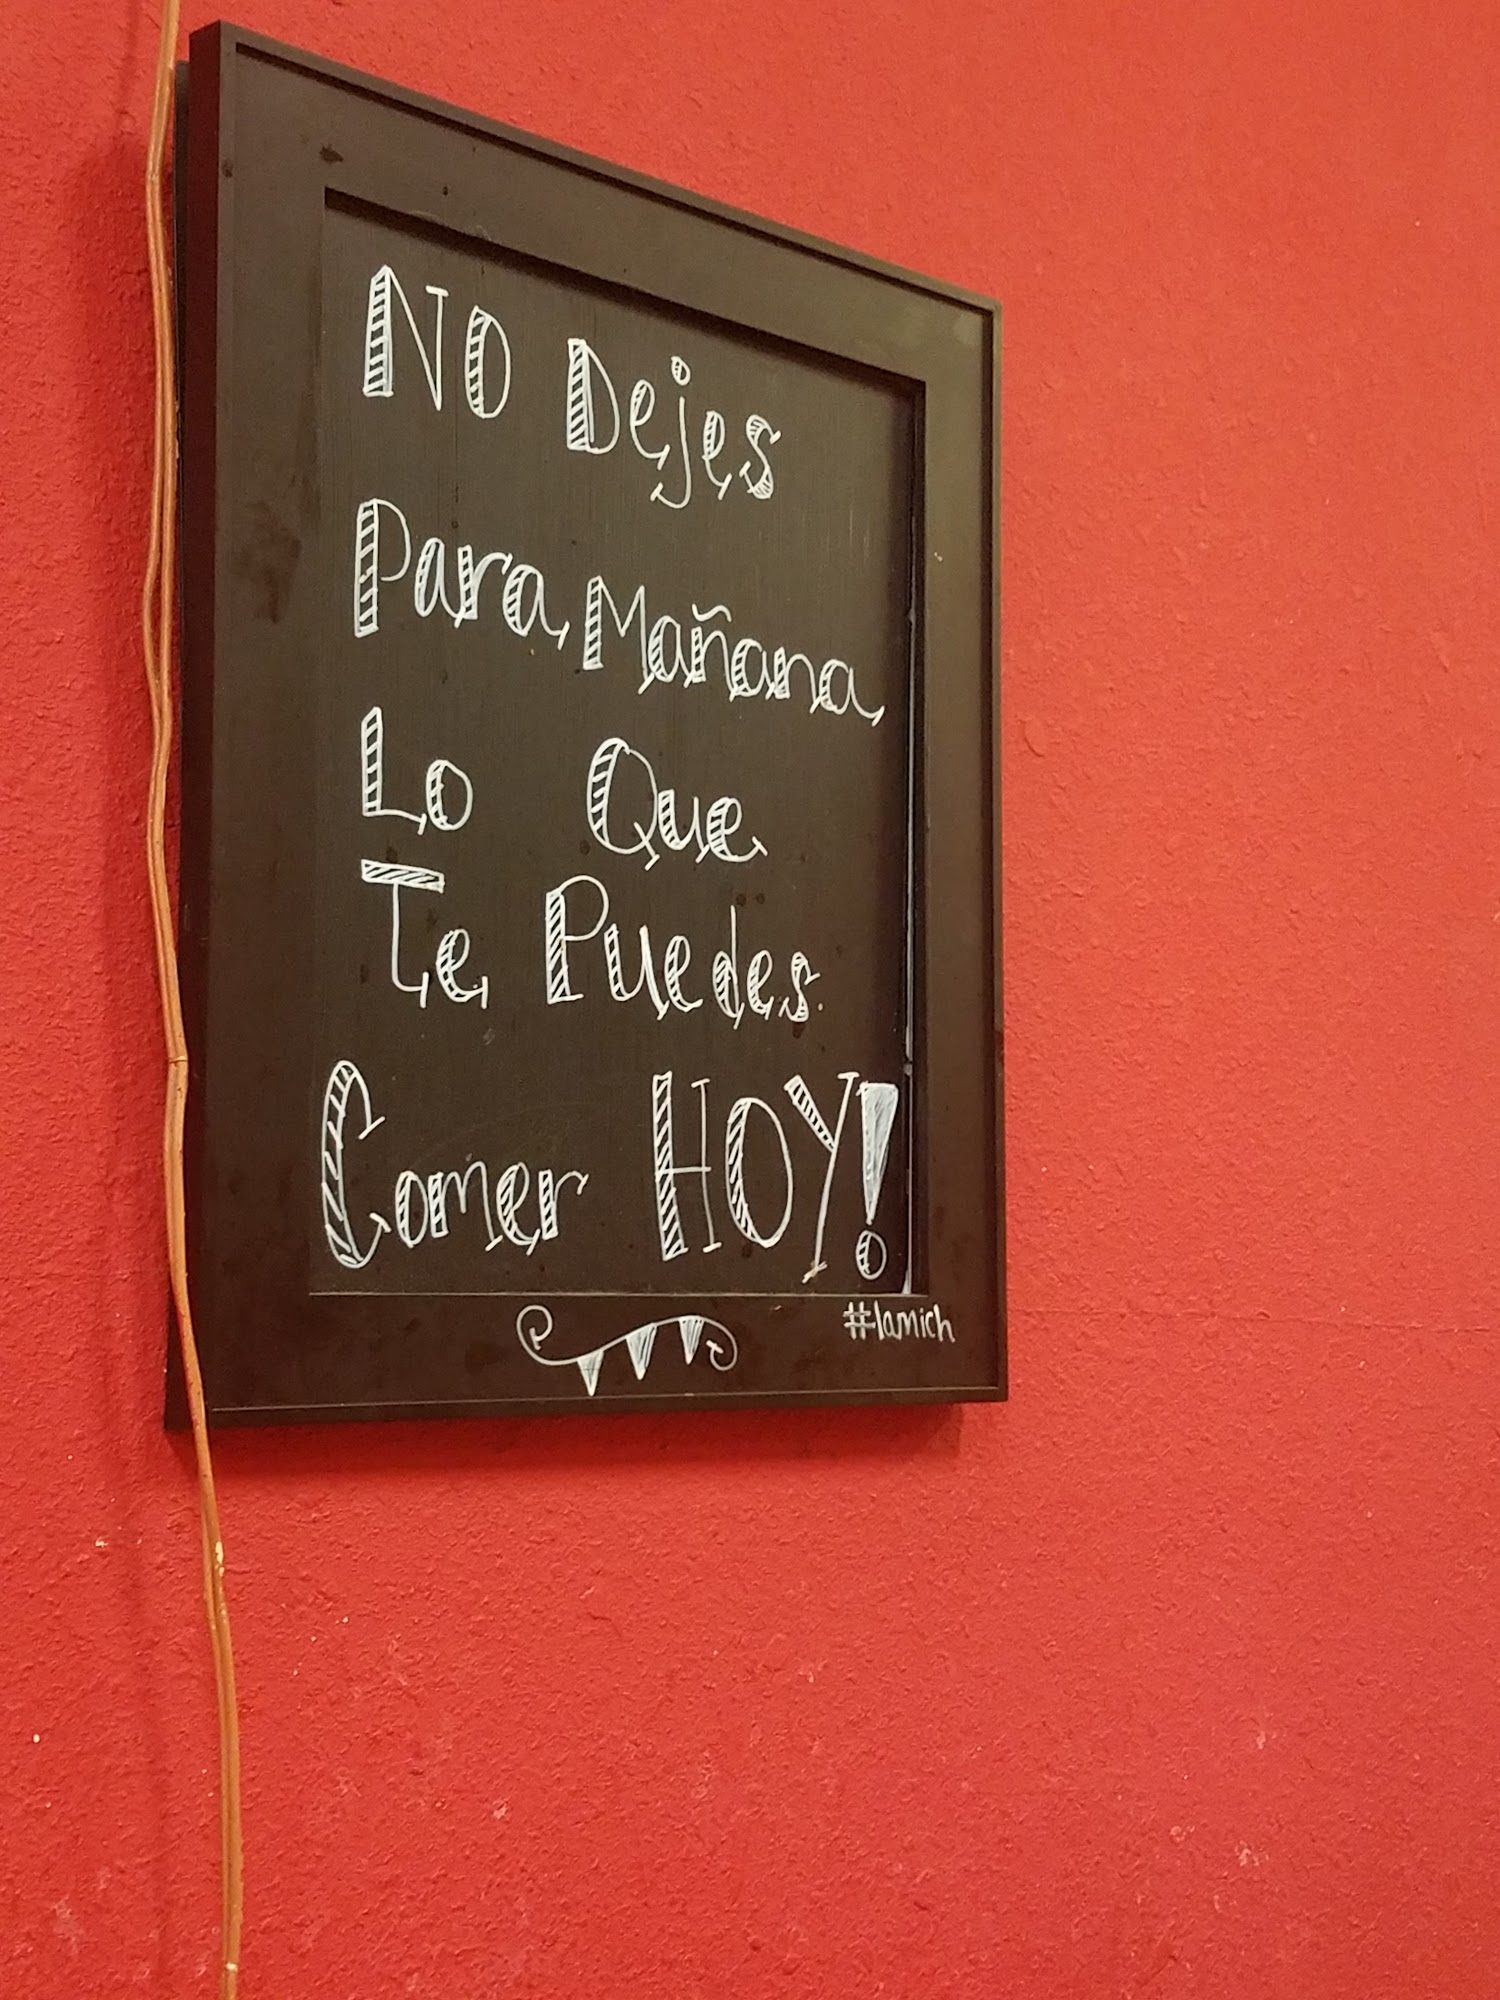 No Dejes
Para Mañana
Lo Que
Te Puedes
Comer HOY!
#lamich